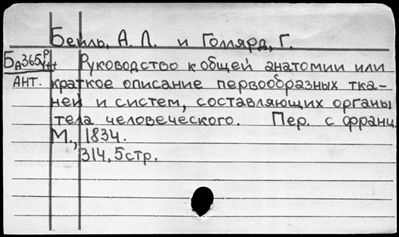 Бейль, А. Л. и Голлярд, Г.
Руководство к общей анатомии или
АНТ. краткое описание первообразных тка-
ней и систем, составляющих органы
тела человеческого. Пер. с франц.
М., 1834.
314, 5 стр.